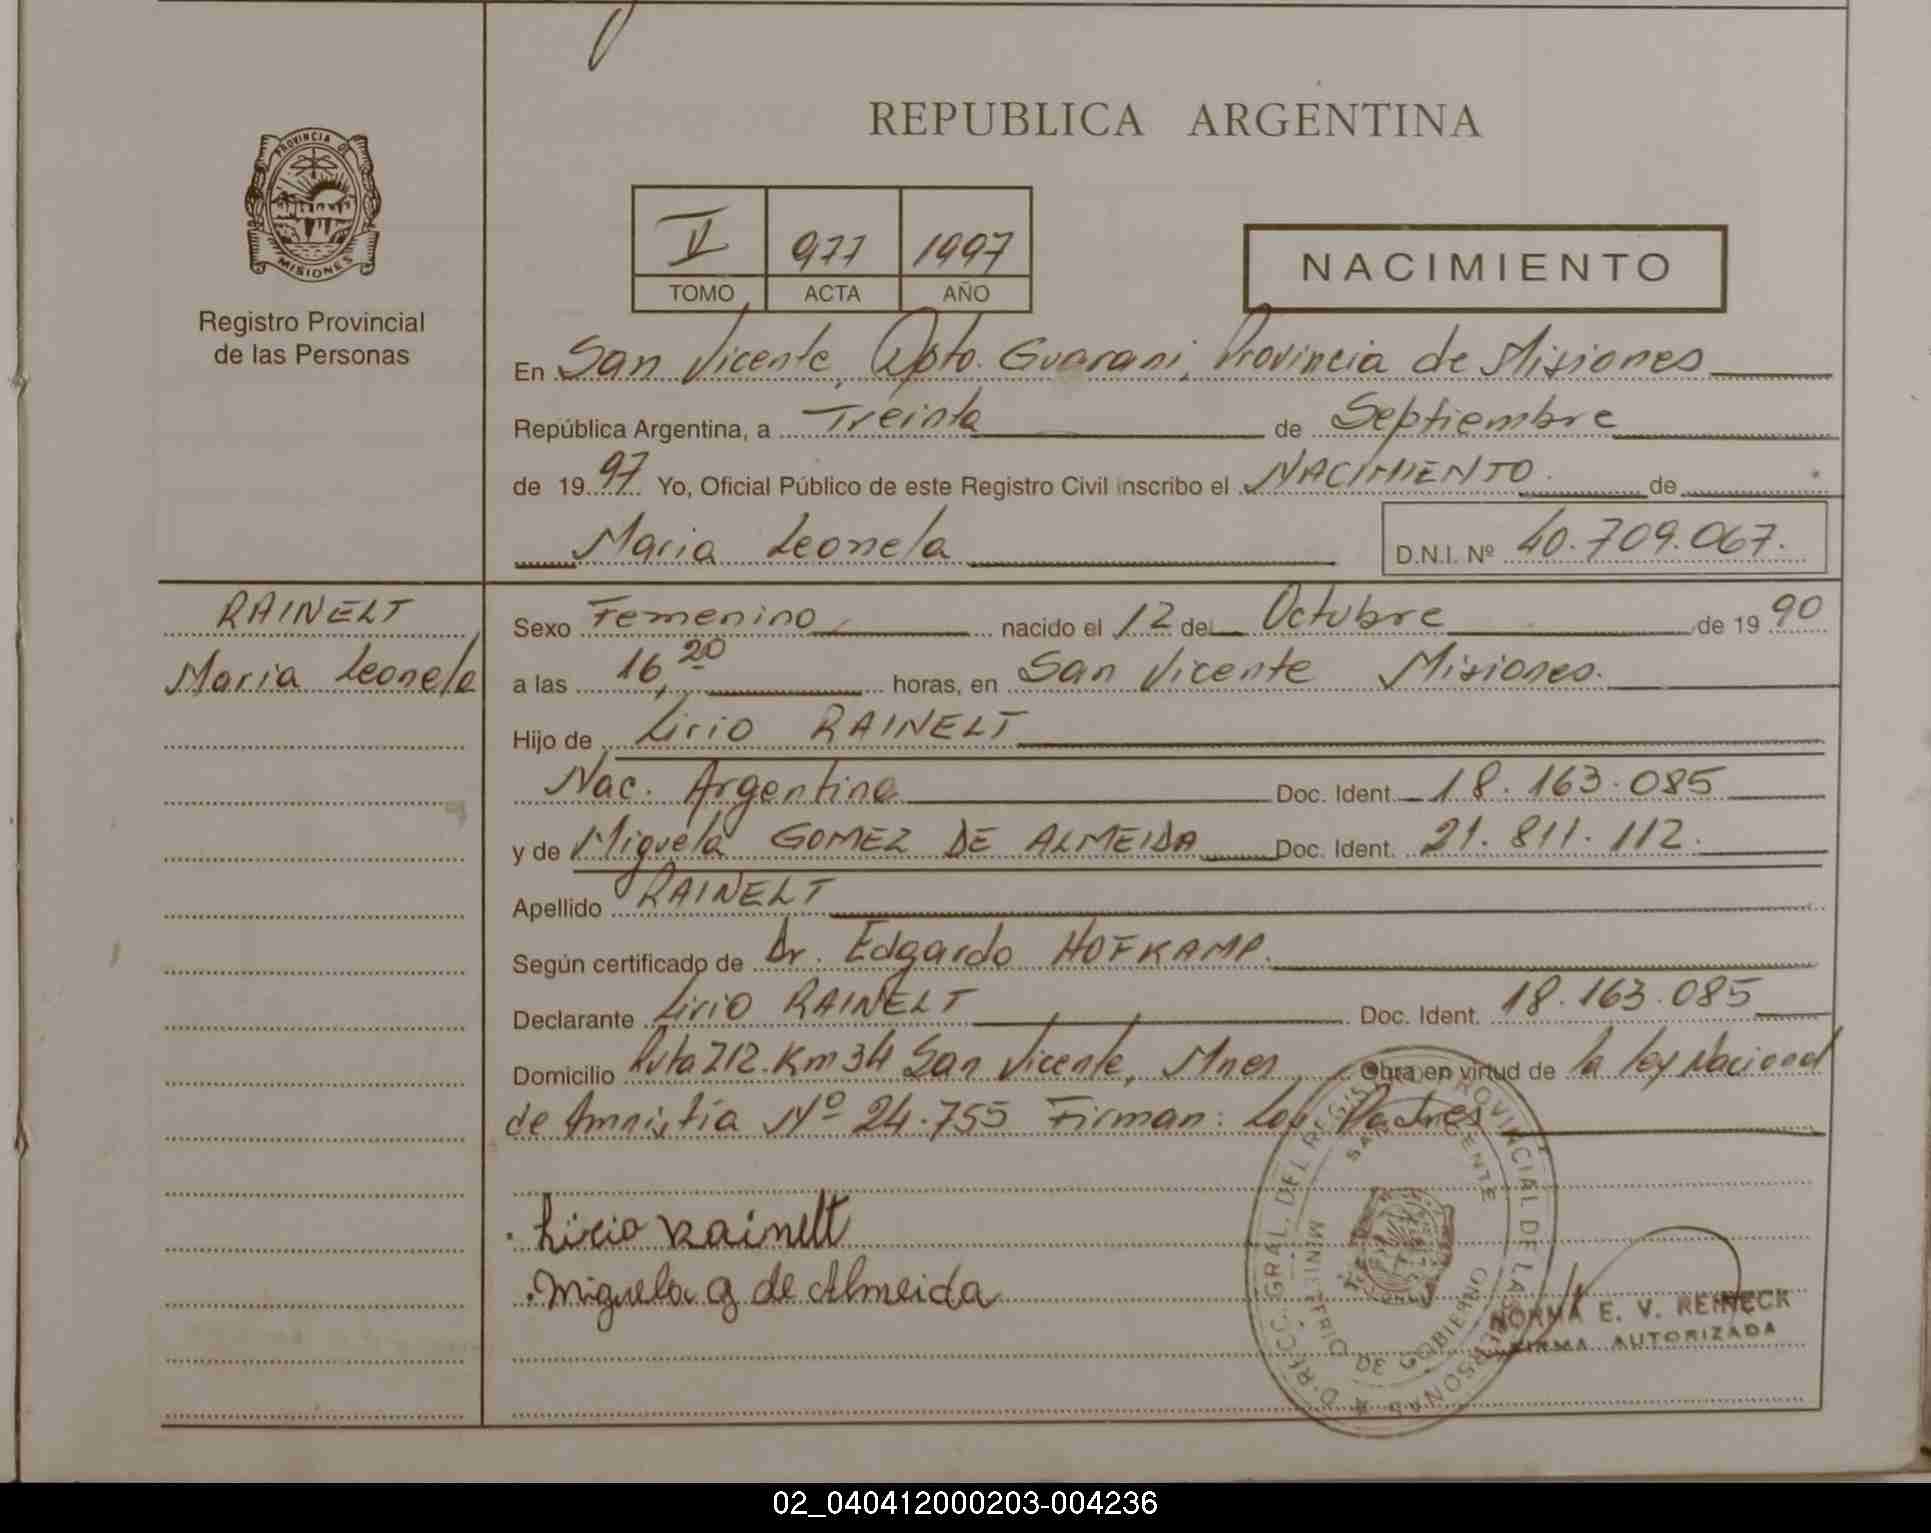 REPUBLICA ARGENTINA
PROVINCIA DE
MISIONES
Registro Provincial
de las Personas
V 977 1997
TOMO ACTA AÑO
NACIMIENTO
En San Vicente, Dpto. Guarani, Provincia de Misiones
República Argentina, a Treinta de Septiembre
de 1997 Yo, Oficial Público de este Registro Civil inscribo el NACIMIENTO de
Maria Leonela D.N.I. Nº 40.709.067.
RAINELT
Maria Leonela
Sexo Femenino nacido el 12 del Octubre de 1990
a las 16,20 horas, en San Vicente Misiones.
Hijo de Lirio RAINELT
Nac. Argentina Doc. Ident. 18.163.085
y de Miguela GOMEZ DE ALMEIDA Doc. Ident. 21.811.112.
Apellido RAINELT
Según certificado de Dr. Edgardo HOFKAMP.
Declarante Lirio RAINELT Doc. Ident. 18.163.085
Domicilio Ruta 212. Km 34 San Vicente, Mnes Obra en virtud de la ley Nacional
de Amnistía Nº 24.755 Firman: Los Padres
Liricio Rainelt
Miguela g de Almeida
DIRECC. GRAL. DEL REGISTRO PROVINCIAL DE LAS PERSONAS
SAN VICENTE
MINISTERIO DE GOBIERNO
NORMA E. V. REINECK
FIRMA AUTORIZADA
02_040412000203-004236